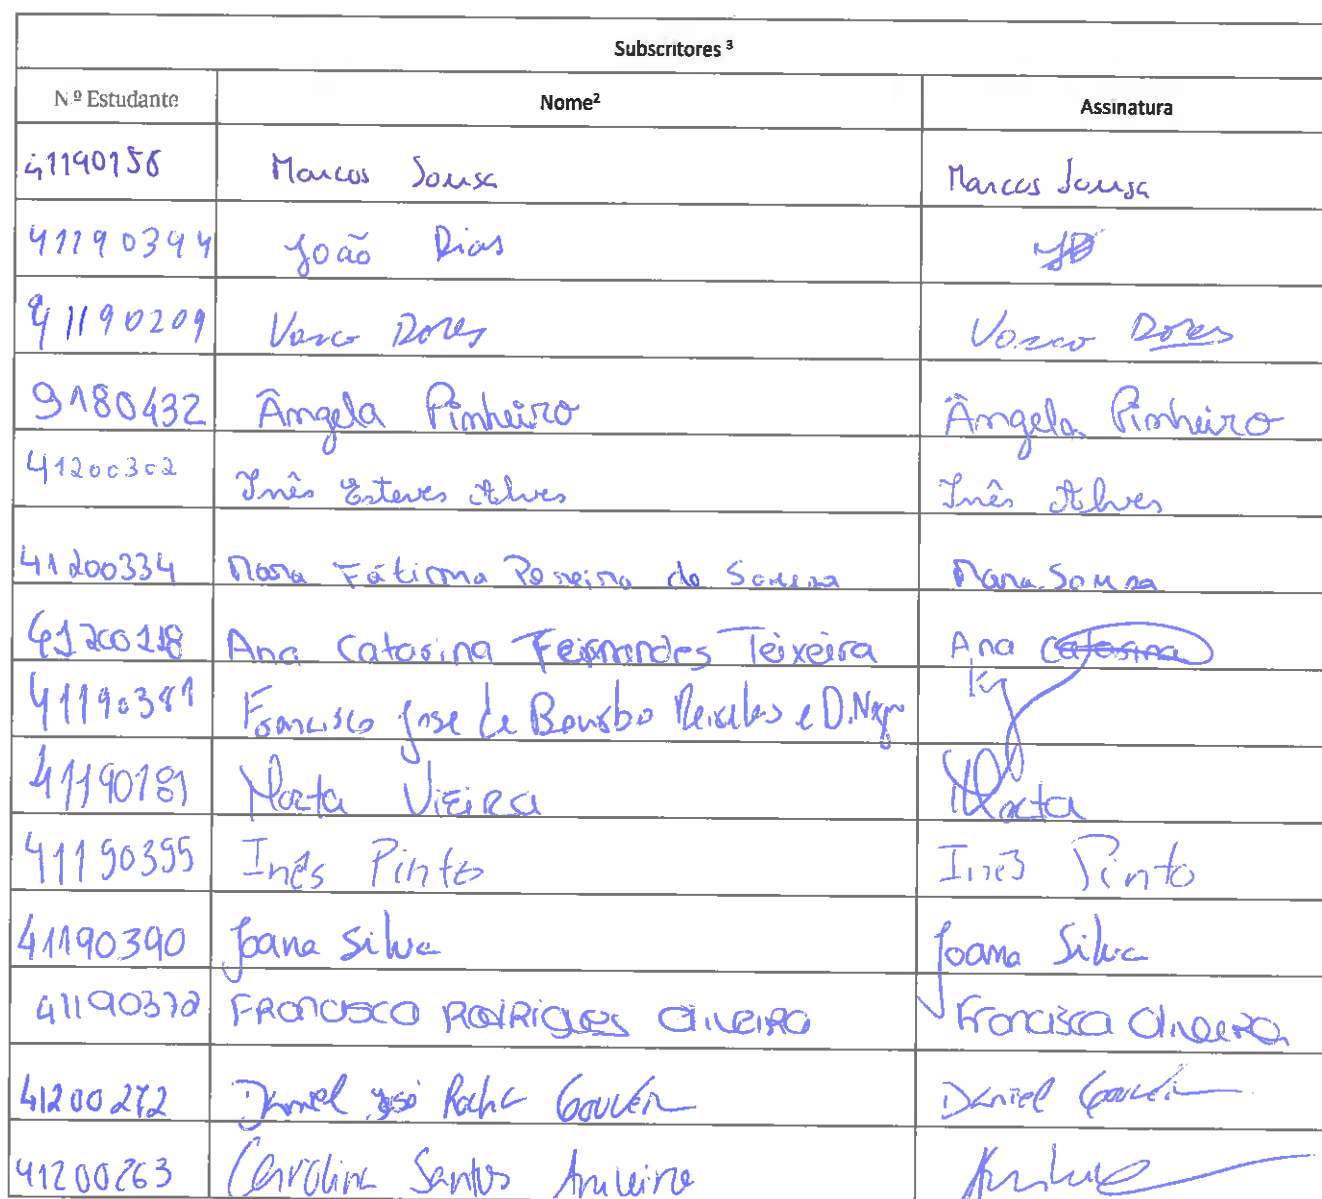 Subscritores ³
N.º Estudante Nome² Assinatura
41190156 Marcos Sousa Marcos Sousa
41190394 João Dias JD
41190209 Vasco Dores Vasco Dores
9180432 Ângela Pinheiro Ângela Pinheiro
41200302 Inês Esteves Alves Inês Alves
41200334 Mara Fátima Pereira de Sousa Mara Sousa
41200118 Ana Catarina Fernandes Teixeira Ana Catarina
41190381 Francisco José de Bourbo e D.
41190181 Marta Vieira Marta
41190395 Inês Pinto Inês Pinto
41190390 Joana Silva Joana Silva
41190372 Francisca Rodrigues Oliveira Francisca Oliveira
41200272 Daniel José Rocha Gouveia Daniel Gouveia
41200263 Carolina Santos